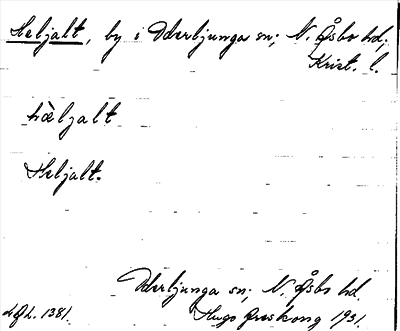 Heljalt, by i Oderljunga sn; N. Åsbo hd,
Krist. l.
hæ̀ljalt
Heljalt.
Oderljunga sn; N. Åsbo hd.
Hugo Areskoug 1931.
1381.